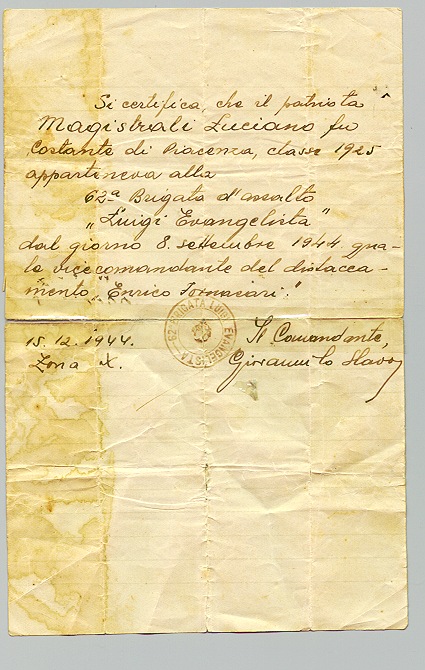 Si certifica, che il patriota
Magistrali Luciano fu
Costante di Piacenza, classe 1925
apparteneva alla
62ª Brigata d'assalto
„Luigi Evangelista"
dal giorno 8. settembre 1944 qua-
le vicecomandante del distacca-
mento „Enrico Fornaciari."
15.12.1944.
Zona X.
Il Comandante,
Giovanni lo Slavo
62ª BRIGATA LUIGI EVANGELISTA